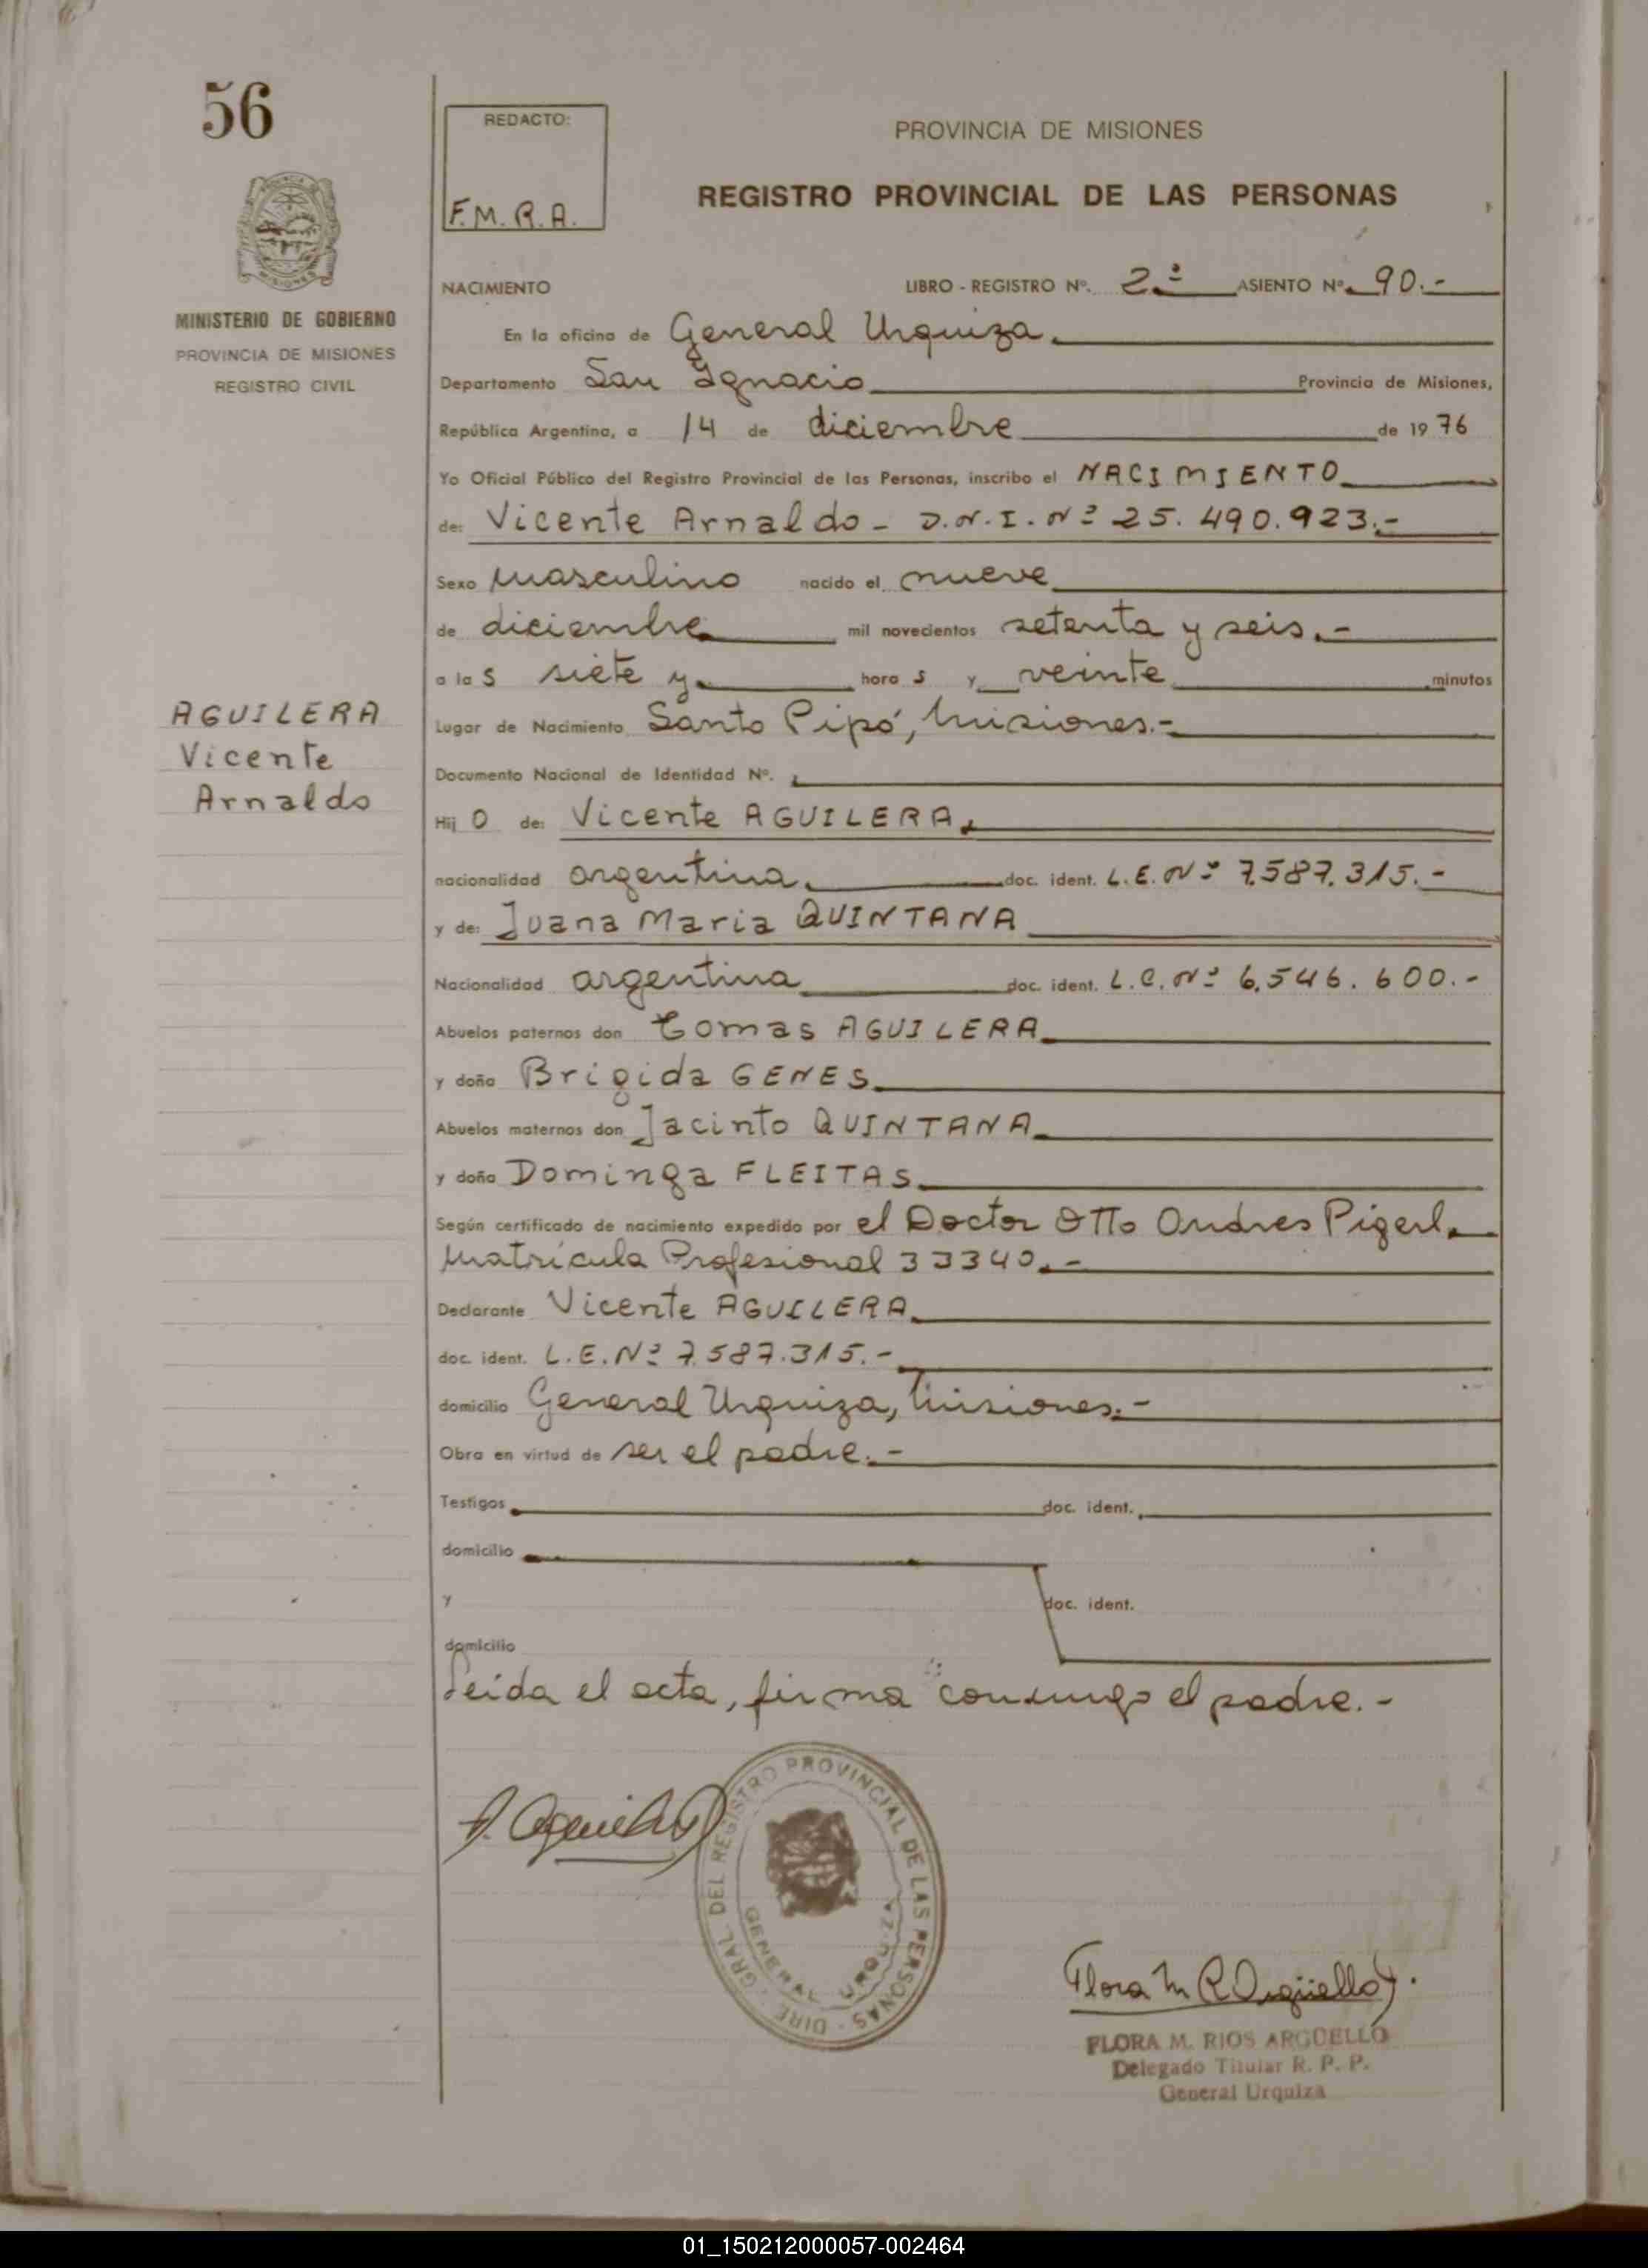 56
REDACTO:
F.M.R.A.
PROVINCIA DE MISIONES
REGISTRO PROVINCIAL DE LAS PERSONAS
MINISTERIO DE GOBIERNO
PROVINCIA DE MISIONES
REGISTRO CIVIL
NACIMIENTO LIBRO - REGISTRO Nº. 2º ASIENTO Nº. 90.-
En la oficina de General Urquiza.
Departamento San Ignacio Provincia de Misiones,
República Argentina, a 14 de diciembre de 1976
Yo Oficial Público del Registro Provincial de las Personas, inscribo el NACIMIENTO
de: Vicente Arnaldo - D.N.I. Nº 25.490.923.-
Sexo Masculino nacido el nueve
de diciembre mil novecientos setenta y seis.-
a las siete y horas y veinte minutos
AGUILERA
Vicente
Arnaldo
Lugar de Nacimiento Santo Pipó, Misiones.-
Documento Nacional de Identidad Nº.
Hijo de: Vicente AGUILERA.
nacionalidad argentina. doc. ident. L.E. Nº 7.587.315.-
y de: Juana Maria QUINTANA
Nacionalidad argentina doc. ident. L.C. Nº 6.546.600.-
Abuelos paternos don Tomas AGUILERA
y doña Brigida GENES
Abuelos maternos don Jacinto QUINTANA
y doña Dominga FLEITAS
Según certificado de nacimiento expedido por el Doctor Otto Andres Pigerl.
Matrícula Profesional 33340.-
Declarante Vicente AGUILERA.
doc. ident. L.E. Nº 7.587.315.-
domicilio General Urquiza, Misiones.-
Obra en virtud de ser el padre.-
Testigos doc. ident.
domicilio
y doc. ident.
domicilio
Leida el acta, firma conmigo el padre.-
DIRE. GRAL. DEL REGISTRO PROVINCIAL DE LAS PERSONAS -
GENERAL URQUIZA
Flora M R Argüello
FLORA M. RIOS ARGÜELLO
Delegado Titular R. P. P.
General Urquiza
01_150212000057-002464